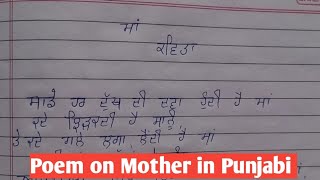 ਮਾਂ
ਕਵਿਤਾ
ਸਾਡੇ ਹਰ ਦੁੱਖ ਦੀ ਦਵਾ ਹੁੰਦੀ ਹੈ ਮਾਂ
ਕਦੇ ਝਿੜਕਦੀ ਹੈ ਸਾਨੂੰ
ਤੇ ਕਦੇ ਗਲੇ ਲਗਾ ਲੈਂਦੀ ਹੈ ਮਾਂ
Poem on Mother in Punjabi